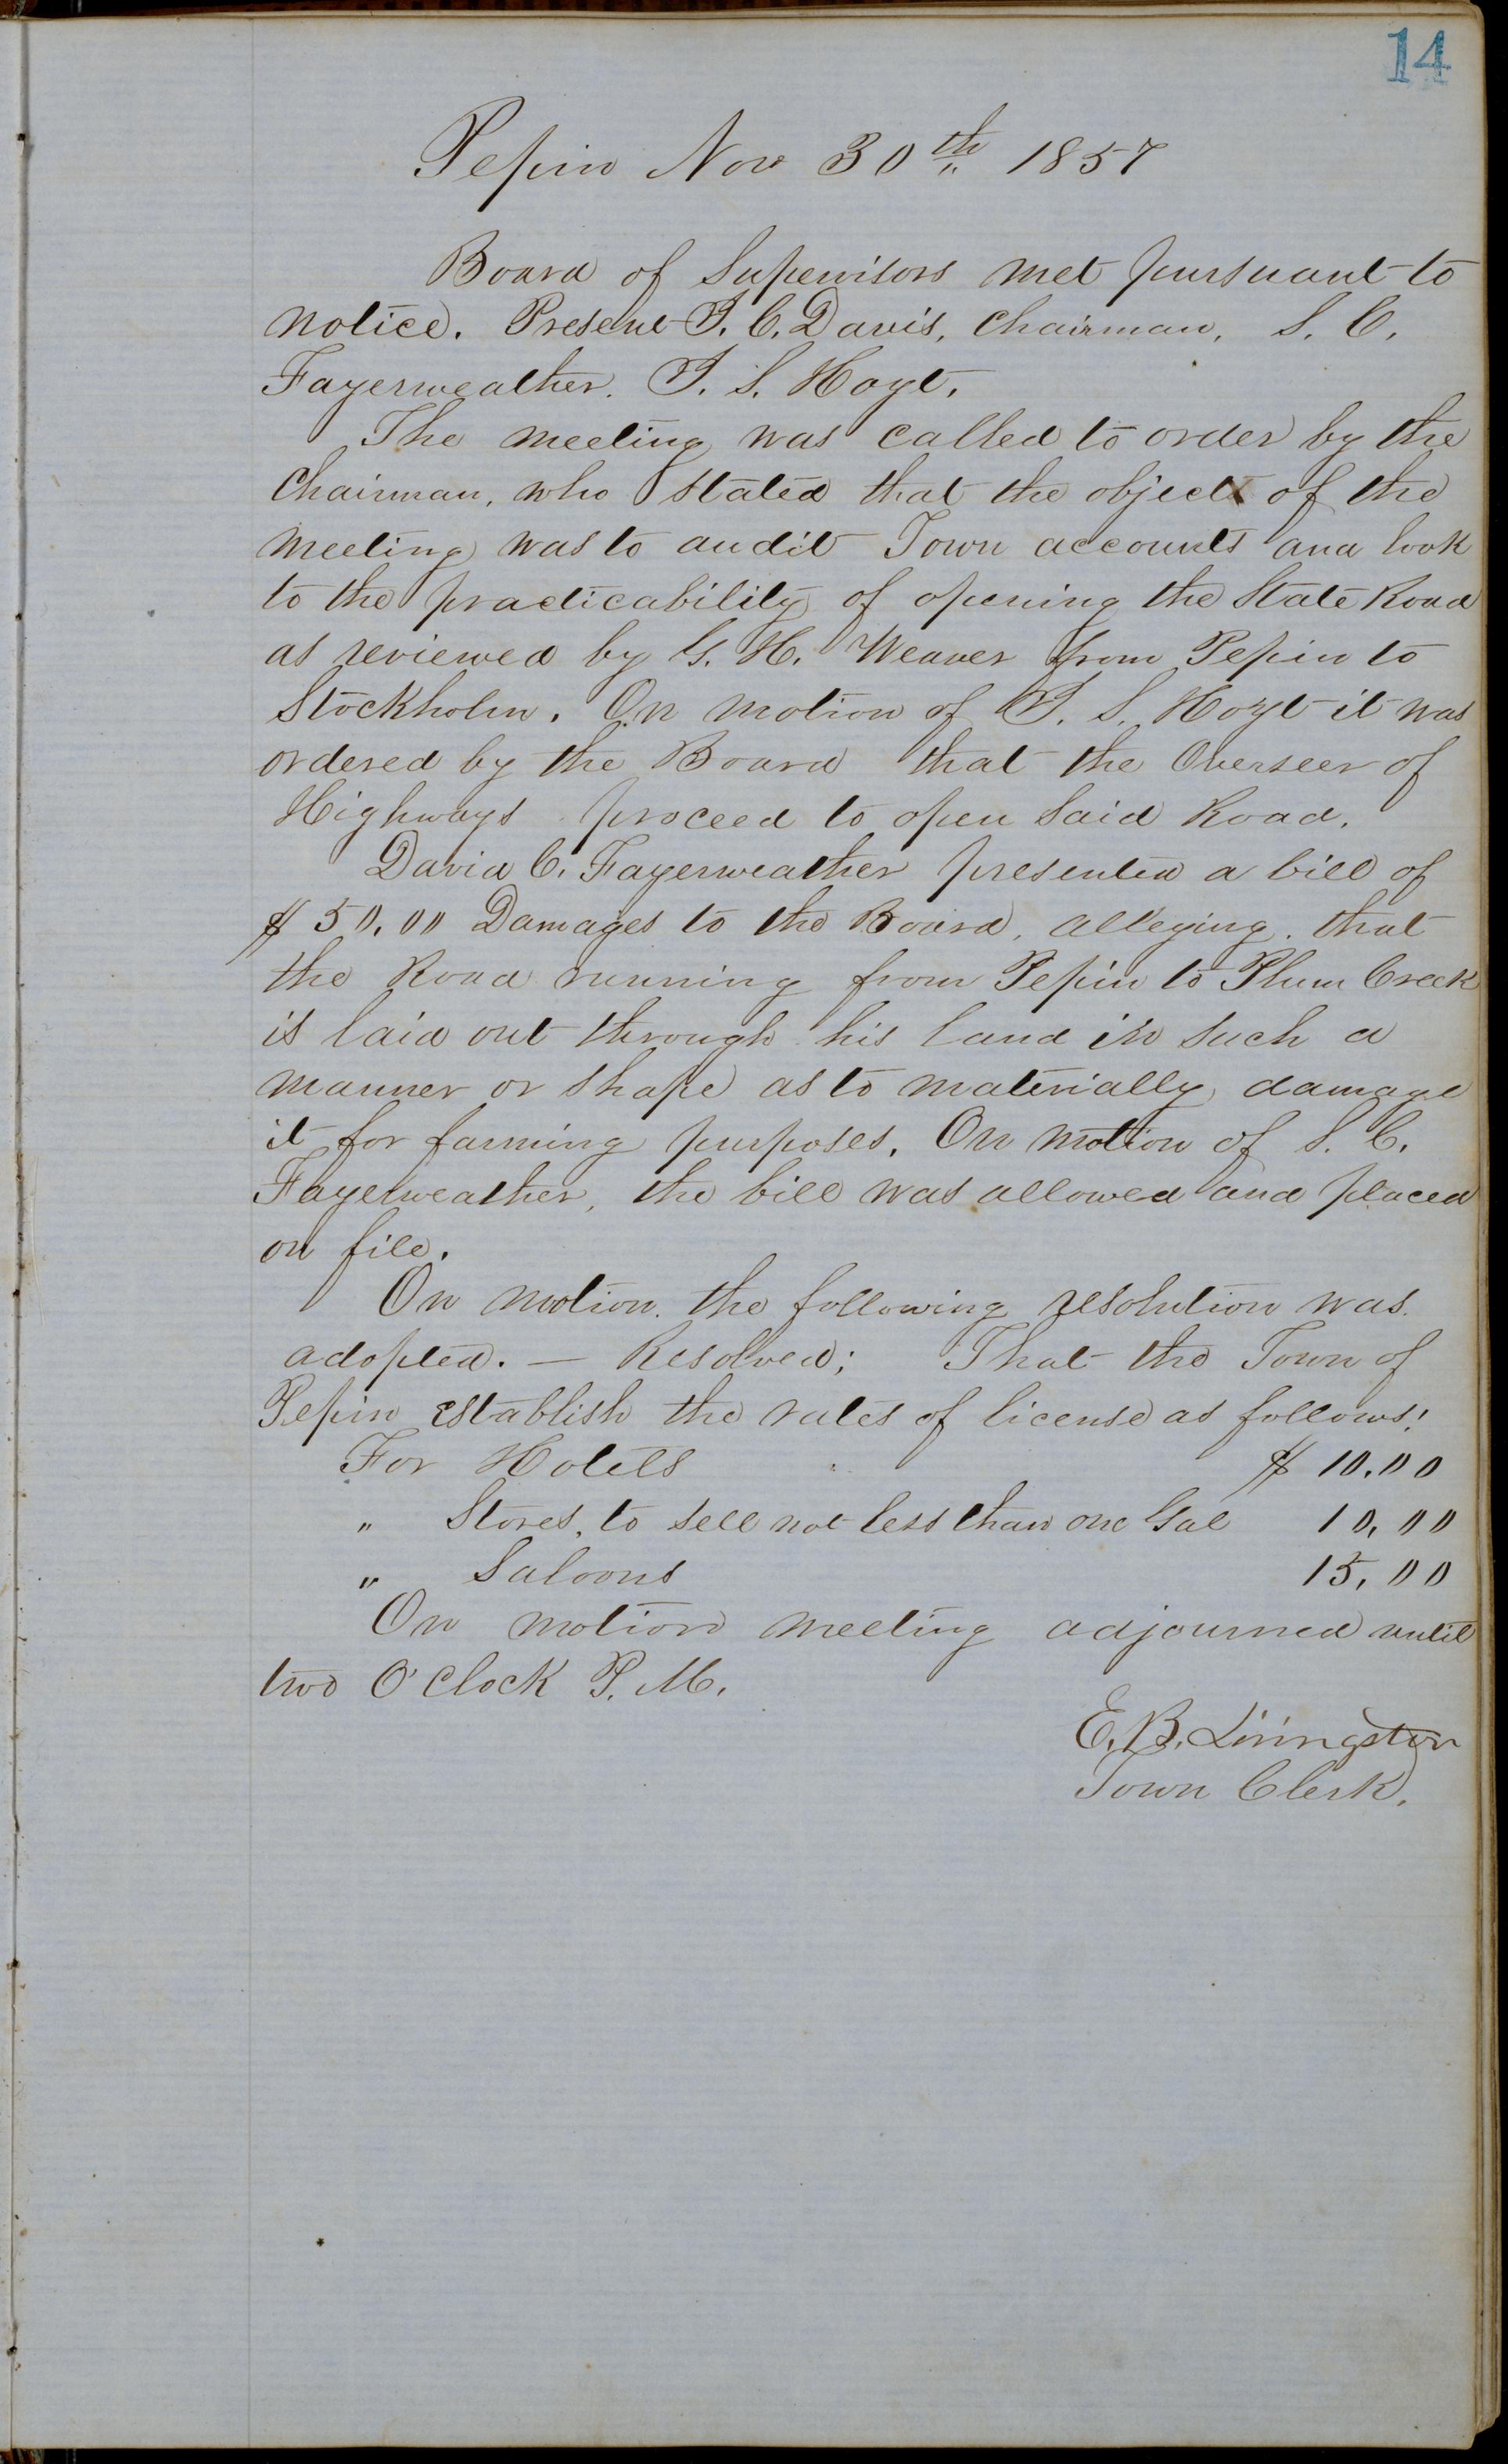 14
Pepin Nov 30th 1857
Board of Supervisors met pursuant to
notice. Present J. C. Davis, Chairman, S. C.
Fayerweather. J. S. Hoyt.
The meeting was called to order by the
Chairman, who stated that the object of the
meeting was to audit Town accounts and look
to the practicability of opening the State Road
as reviewed by G. H. Weaver from Pepin to
Stockholm. On motion of J. S. Hoyt it was
ordered by the Board that the Overseer of
Highways proceed to open said Road.
David C. Fayerweather presented a bill of
$50.00 Damages to the Board, alleging that
the Road running from Pepin to Plum Creek
is laid out through his land in such a
manner or shape as to materially damage
it for farming purposes. On motion of S. C.
Fayerweather, the bill was allowed and placed
on file.
On motion the following resolution was
adopted. — Resolved; That the Town of
Pepin establish the rates of license as follows!
For Hotels $10.00
" Stores, to sell not less than one Gal 10,00
" Saloons 15,00
On motion meeting adjourned until
two O'Clock P. M.
E. B. Livingston
Town Clerk.